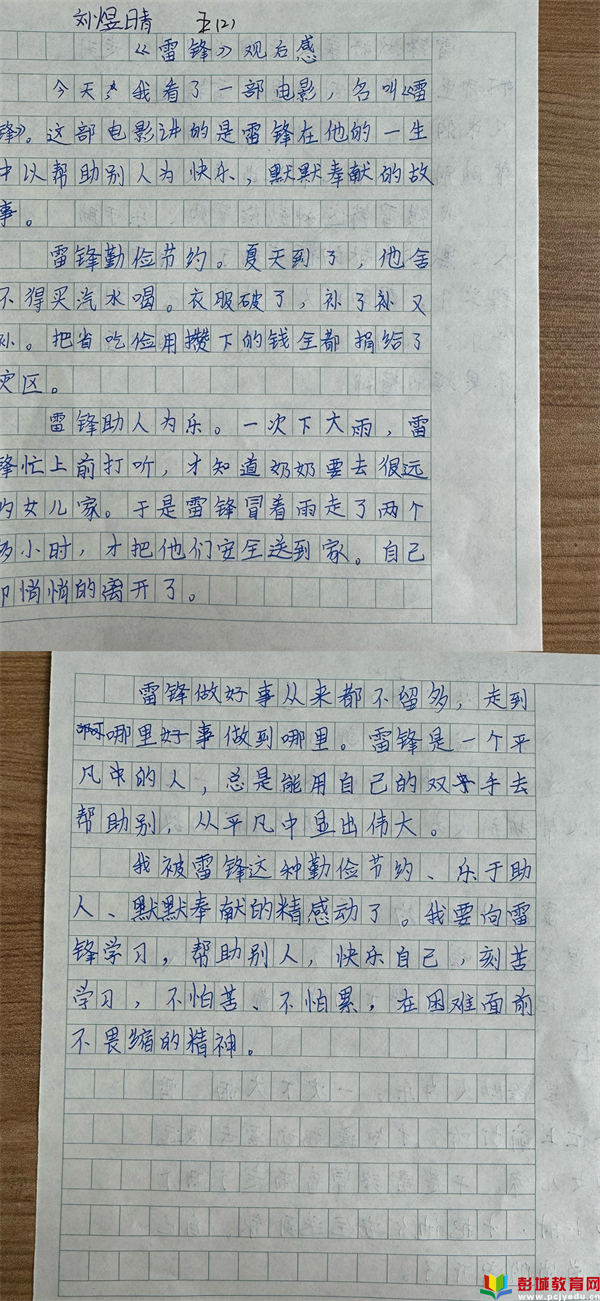 刘煜晴 五(2)
《雷锋》观后感
今天,我看了一部电影,名叫《雷
锋》。这部电影讲的是雷锋在他的一生
中以帮助别人为快乐,默默奉献的故
事。
雷锋勤俭节约。夏天到了,他舍
不得买汽水喝。衣服破了,补了补又
补。把省吃俭用攒下的钱全都捐给了
灾区。
雷锋助人为乐。一次下大雨,雷
锋忙上前打听,才知道奶奶要去很远
的女儿家。于是雷锋冒着雨走了两个
多小时,才把他们安全送到家。自己
却悄悄的离开了。
雷锋做好事从来都不留多,走到
哪里好事做到哪里。雷锋是一个平
凡的人,总是能用自己的双手去
帮助别,从平凡中显出伟大。
我被雷锋这种勤俭节约、乐于助
人、默默奉献的精感动了。我要向雷
锋学习,帮助别人,快乐自己,刻苦
学习,不怕苦、不怕累,在困难面前
不畏缩的精神。
彭城教育网
www.pcjyedu.cn